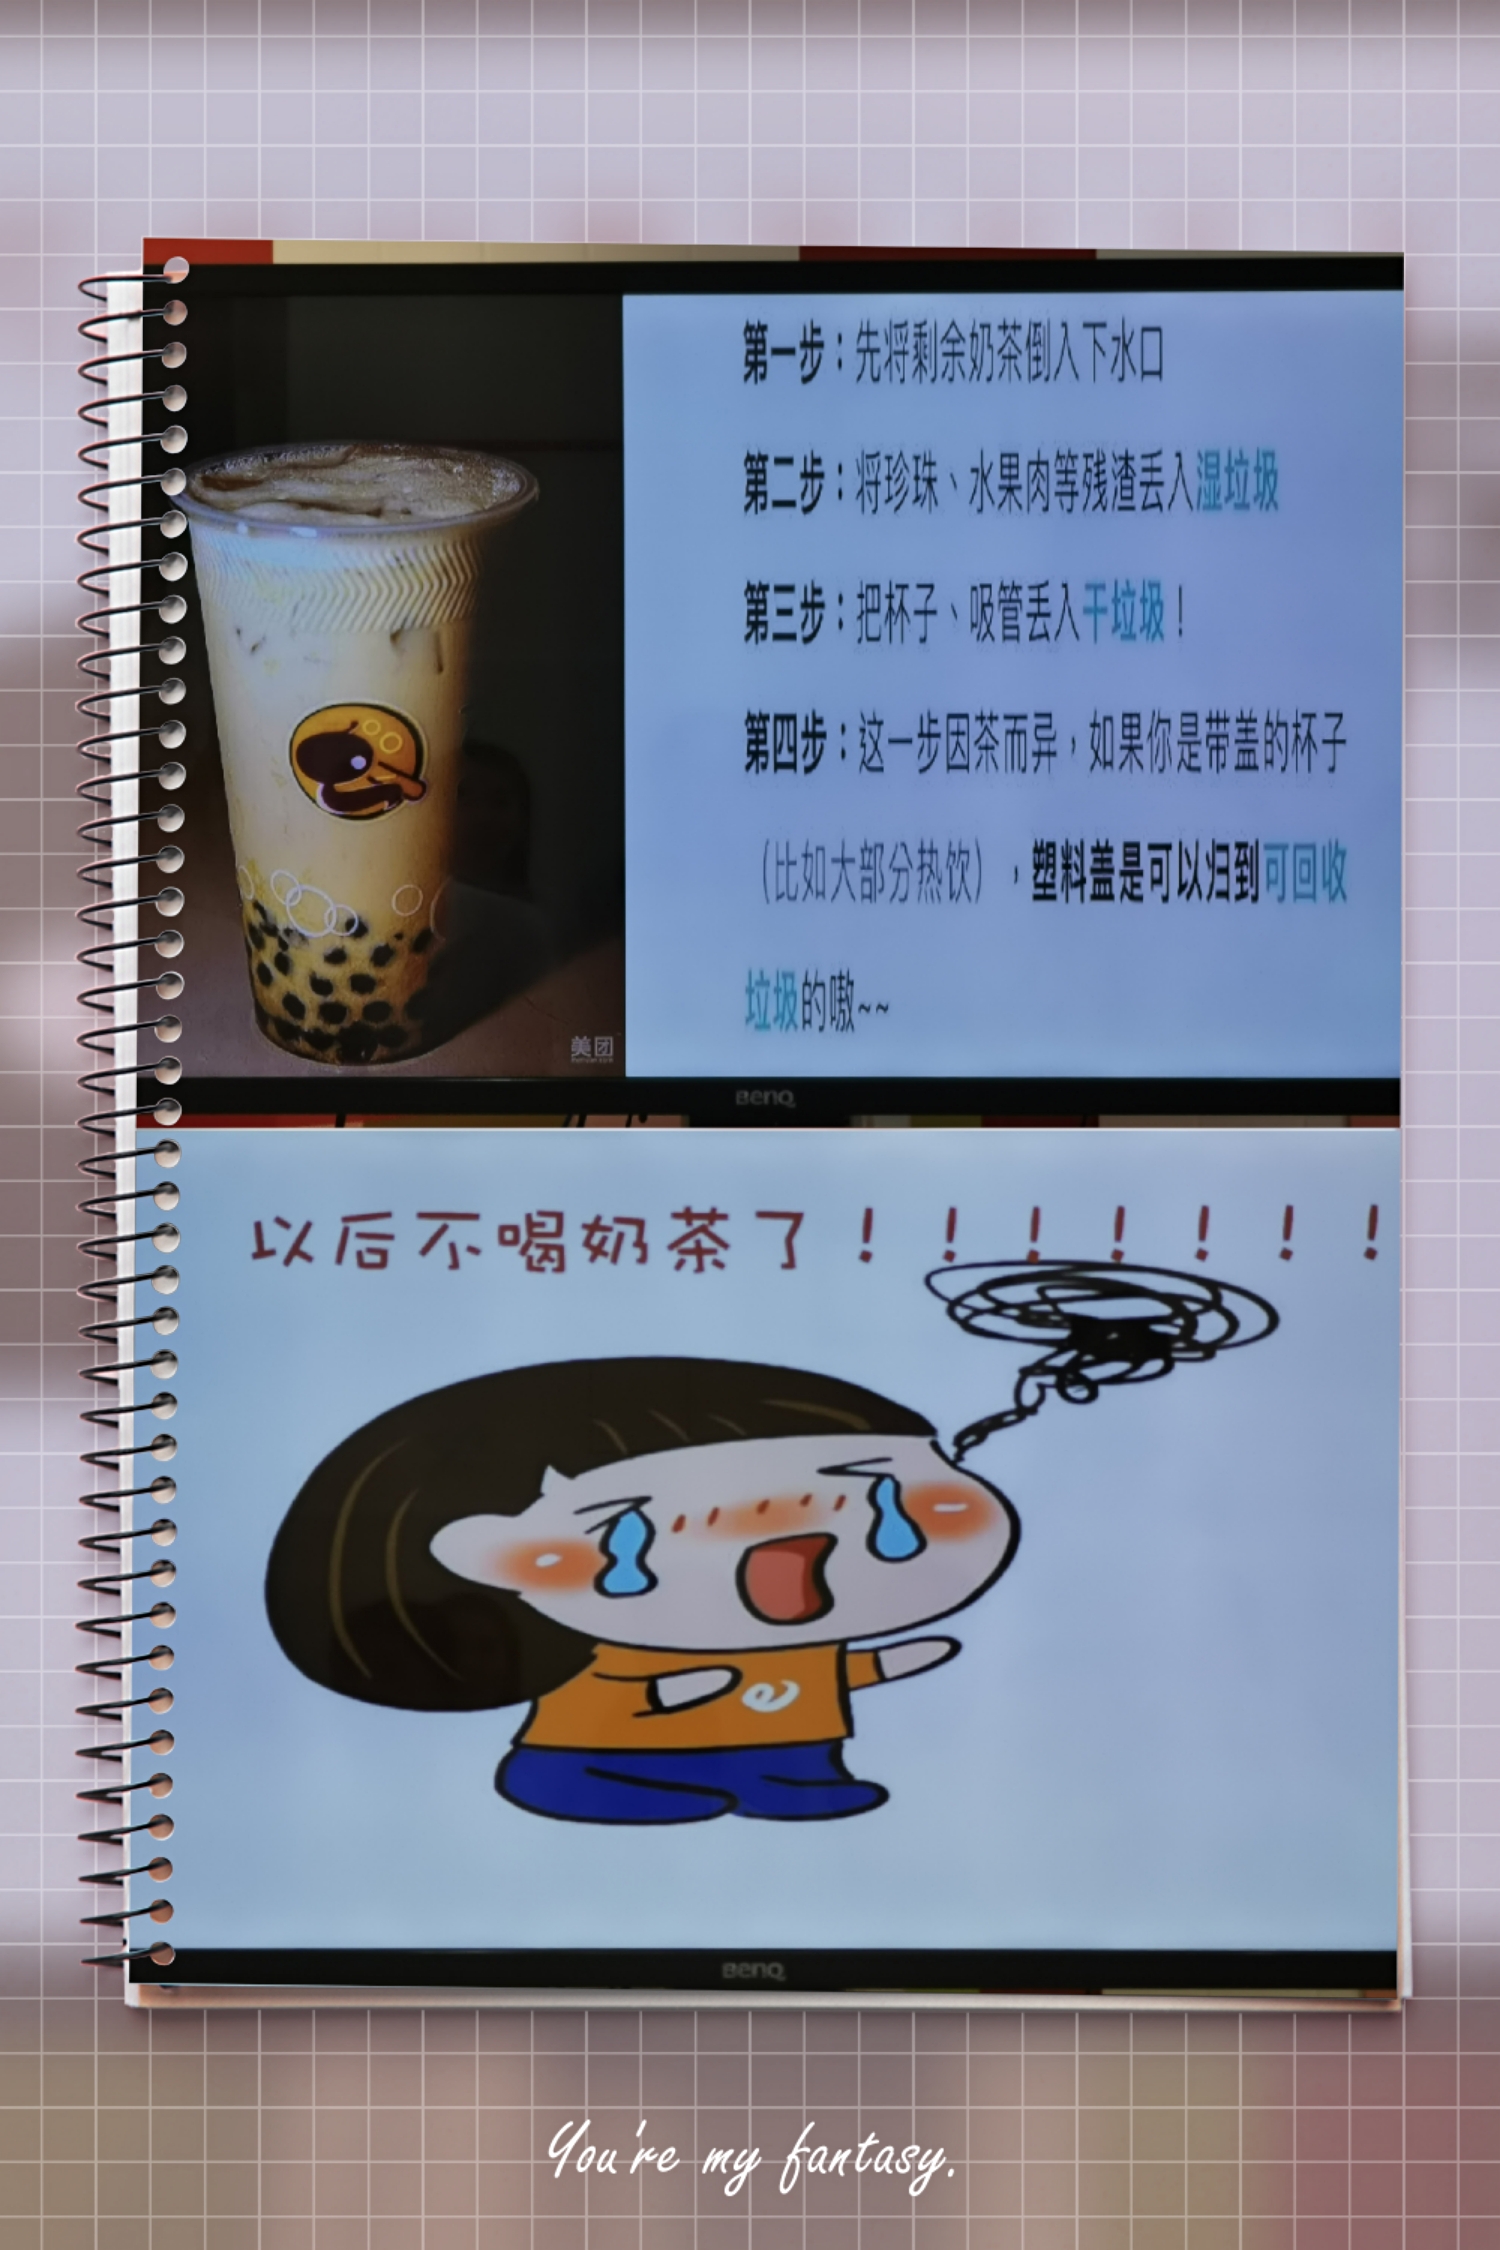 第一步：先将剩余奶茶倒入下水口
第二步：将珍珠、水果肉等残渣丢入湿垃圾
第三步：把杯子、吸管丢入干垃圾！
第四步：这一步因茶而异，如果你是带盖的杯子
（比如大部分热饮），塑料盖是可以归到可回收
垃圾的嗷~~
美团
BenQ
以后不喝奶茶了！！！！！！！
e
BenQ
You're my fantasy.